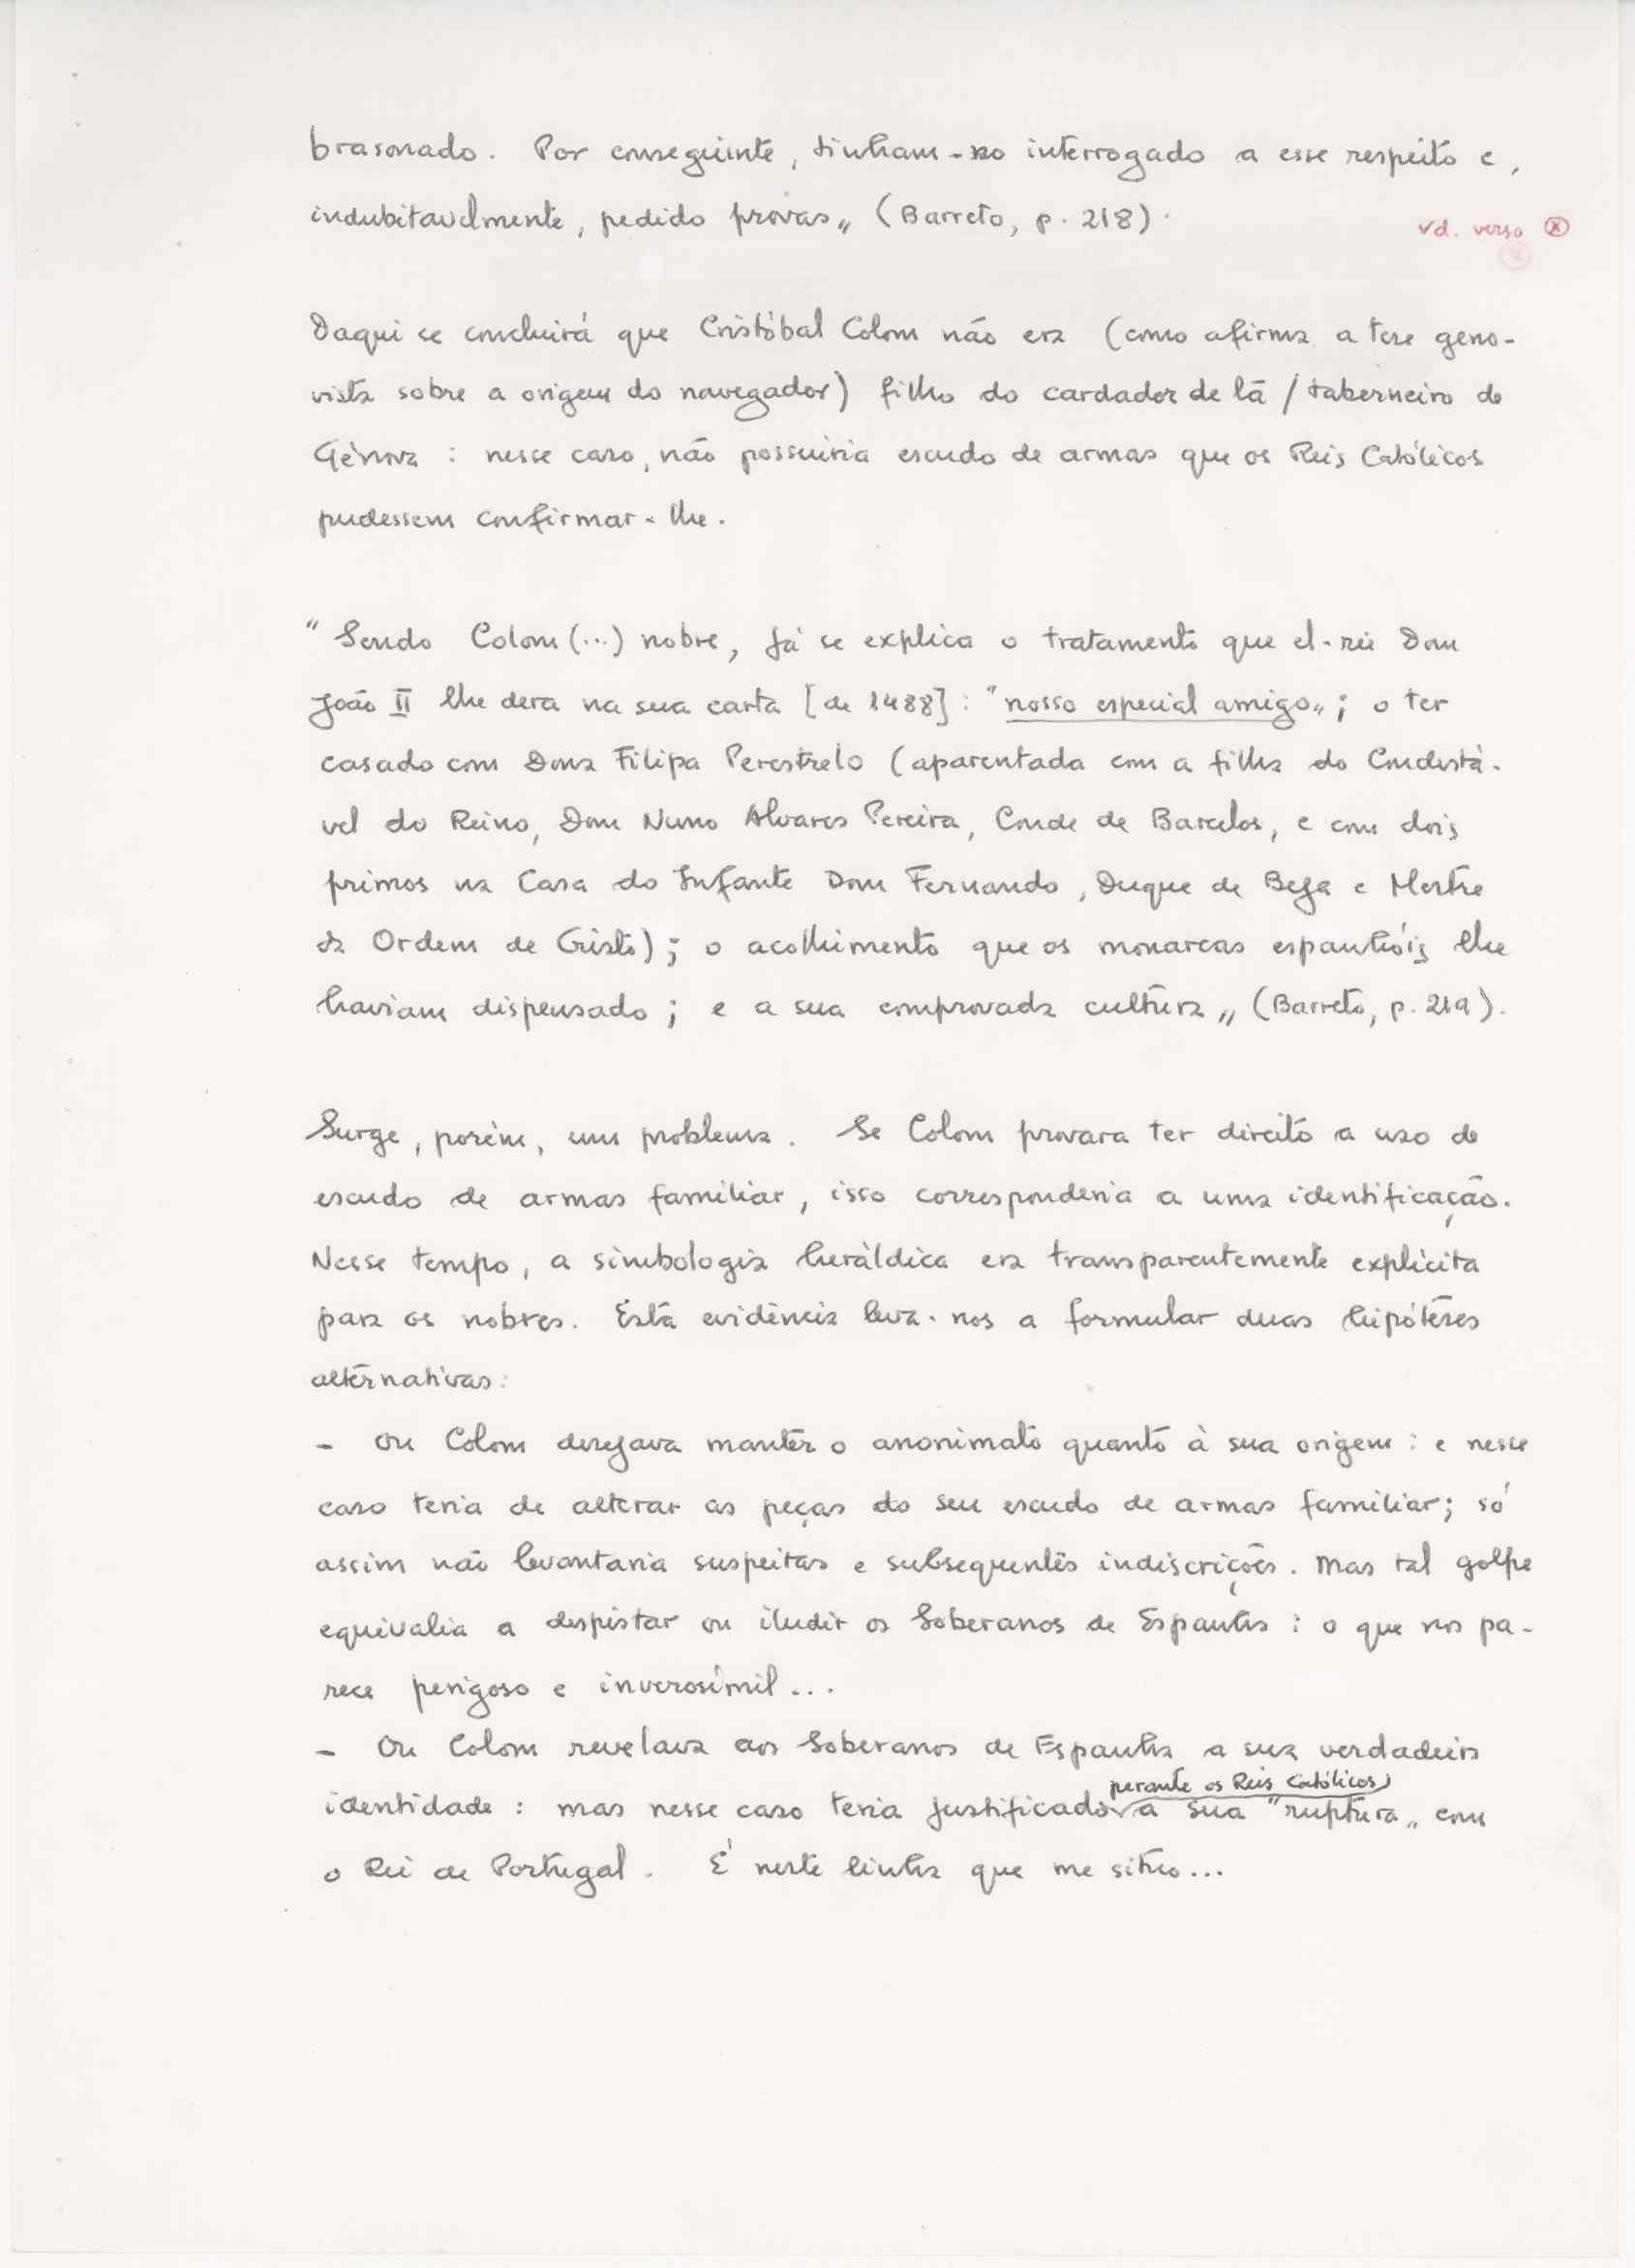 brasonado. Por conseguinte, tinham-no interrogado a esse respeito e,
indubitavelmente, pedido provas„ (Barreto, p. 218).
vd. verso ⓧ
Daqui se concluirá que Cristóbal Colom não era (como afirma a tese geno-
vista sobre a origem do navegador) filho do cardador de lã / taberneiro de
Génova : nesse caso, não possuiria escudo de armas que os Reis Católicos
pudessem confirmar-lhe.
"Sendo Colom (...) nobre, já se explica o tratamento que el-rei Dom
João II lhe dera na sua carta [de 1488] : "nosso especial amigo„ ; o ter
casado com Dona Filipa Perestrelo (aparentada com a filha do Condestá-
vel do Reino, Dom Nuno Alvares Pereira, Conde de Barcelos, e com dois
primos na Casa do Infante Dom Fernando, Duque de Beja e Mestre
da Ordem de Cristo) ; o acolhimento que os monarcas espanhóis lhe
haviam dispensado ; e a sua comprovada cultura„ (Barreto, p. 219).
Surge, porém, um problema. Se Colom provara ter direito a uso de
escudo de armas familiar, isso corresponderia a uma identificação.
Nesse tempo, a simbologia heráldica era transparentemente explícita
para os nobres. Esta evidência leva-nos a formular duas hipóteses
alternativas:
- Ou Colom desejava manter o anonimato quanto à sua origem : e nesse
caso teria de alterar as peças do seu escudo de armas familiar; só
assim não levantaria suspeitas e subsequentes indiscrições. Mas tal golpe
equivalia a despistar ou iludir os Soberanos de Espanha : o que nos pa-
rece perigoso e inverosímil...
- Ou Colom revelava aos Soberanos de Espanha a sua verdadeira
perante os Reis Católicos
identidade : mas nesse caso teria justificado a sua "ruptura„ com
o Rei de Portugal. É neste linha que me situo...